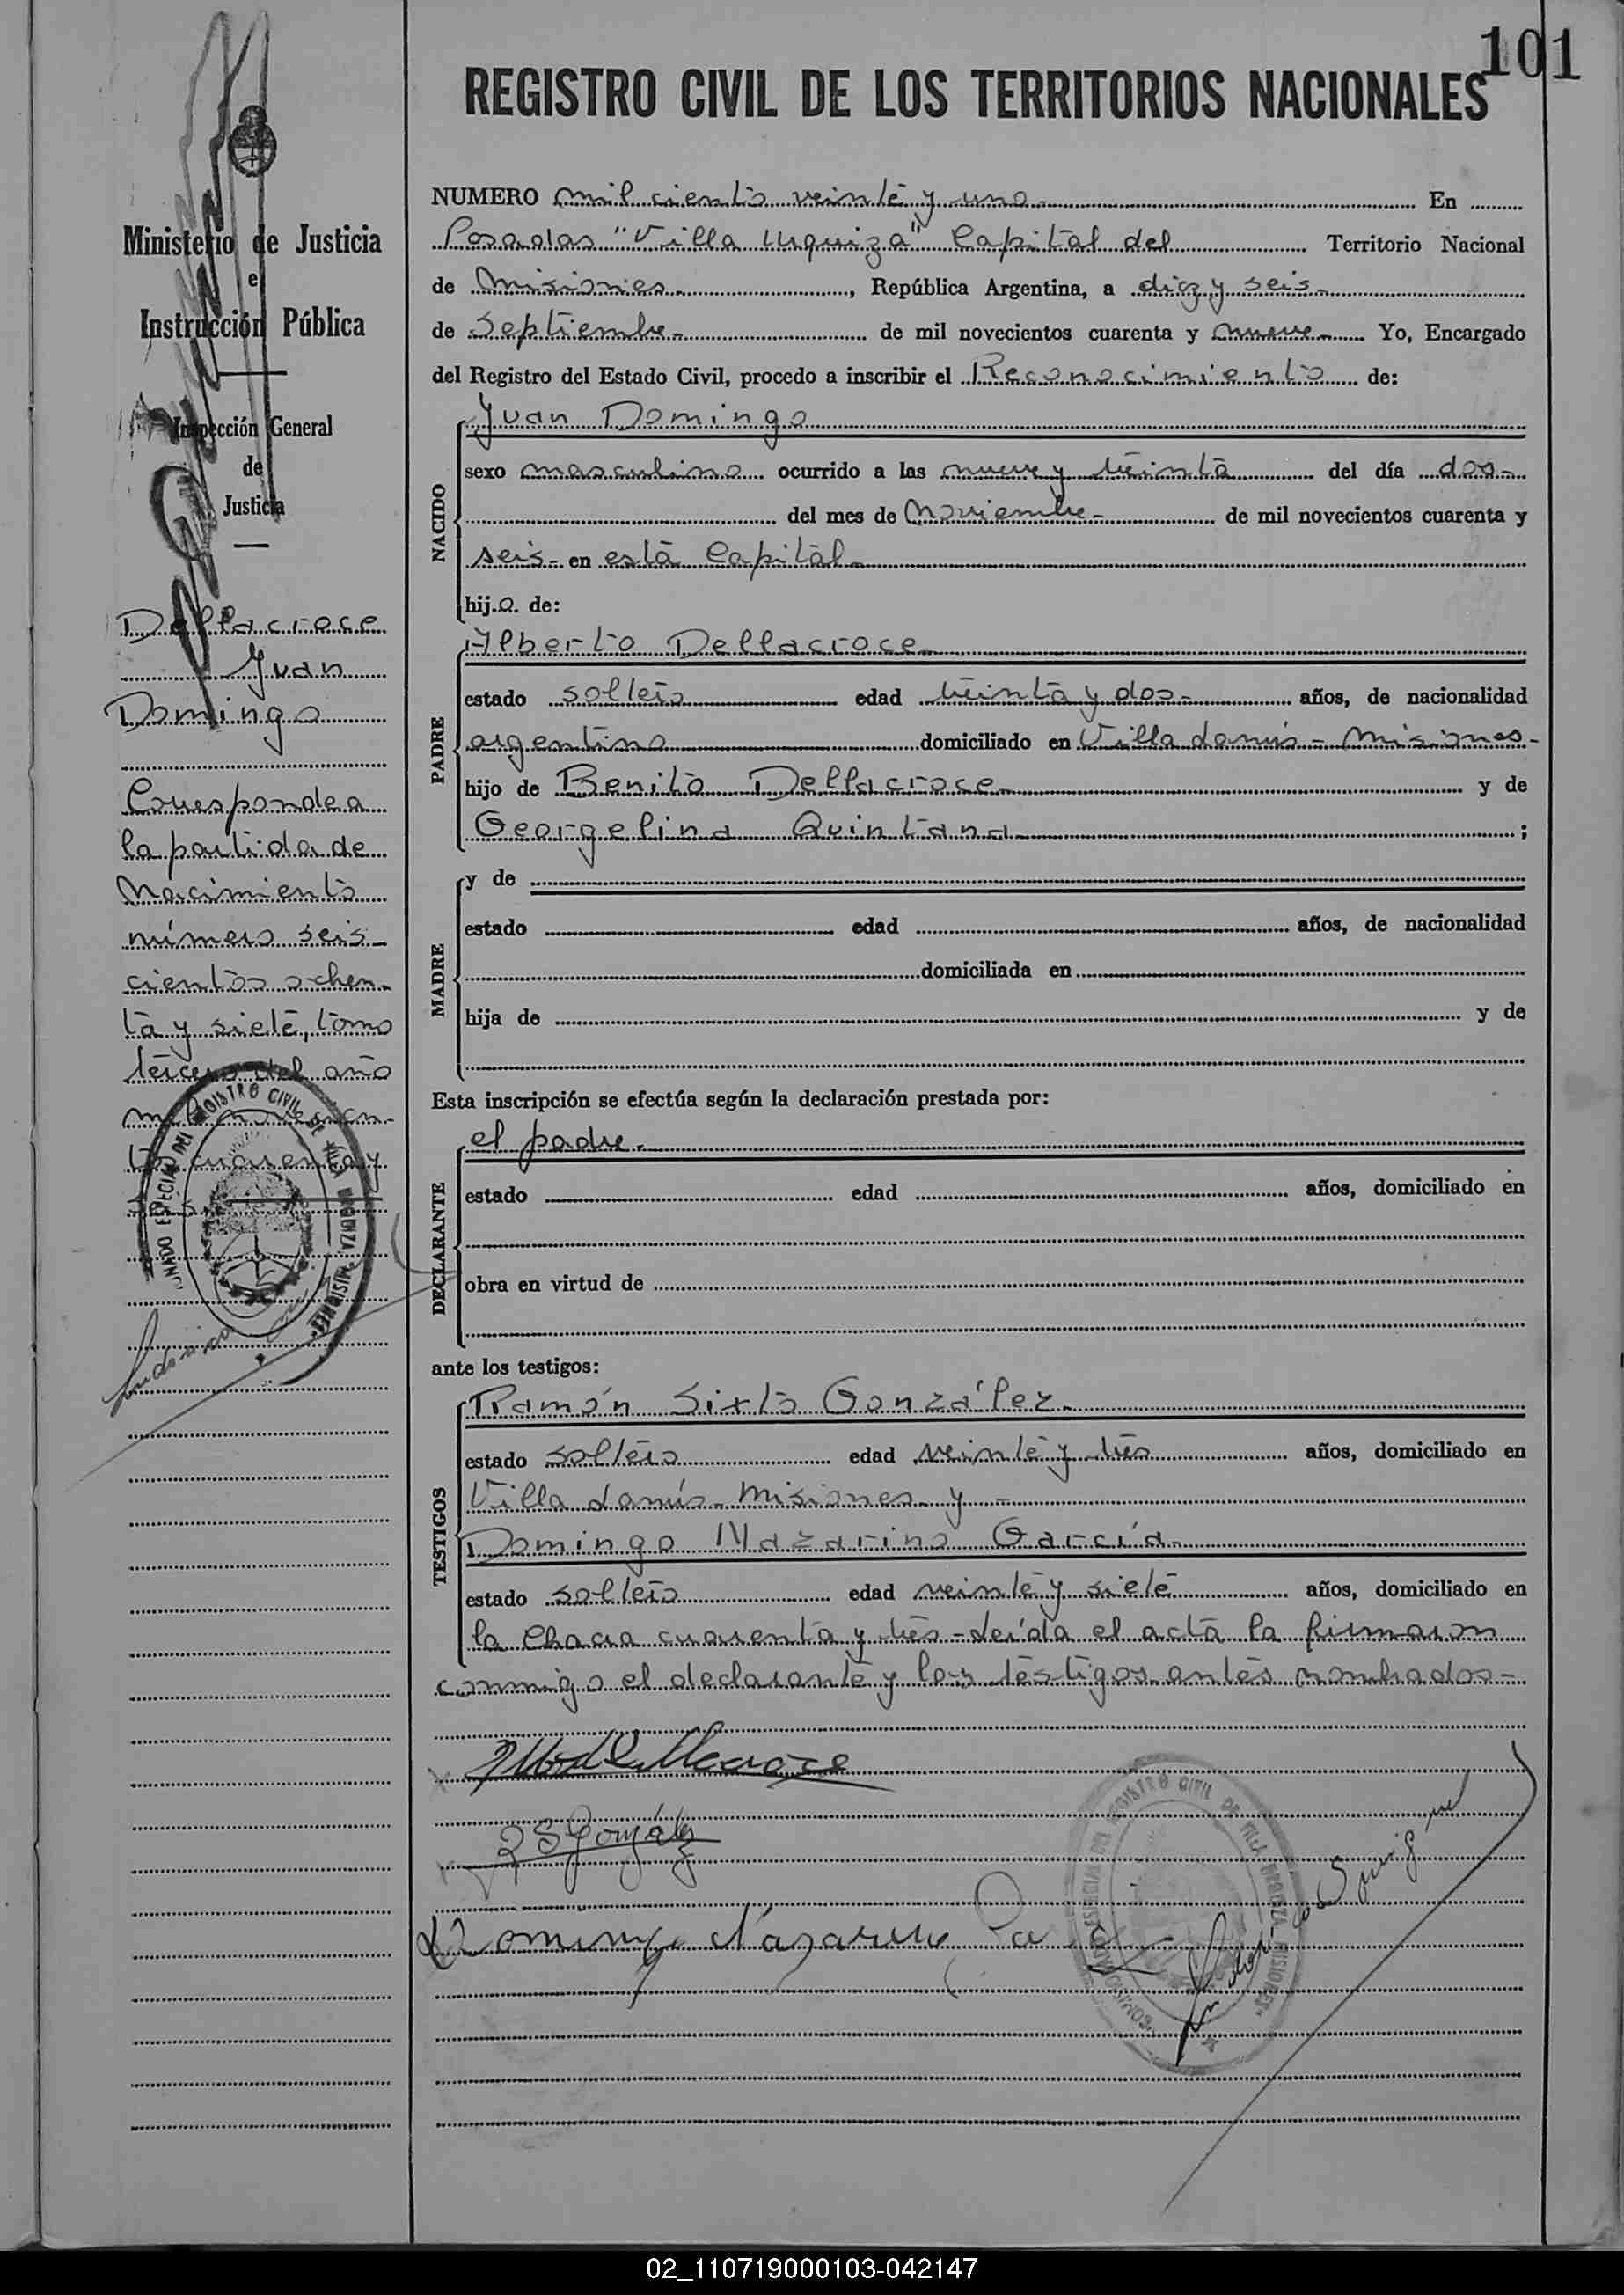 101
REGISTRO CIVIL DE LOS TERRITORIOS NACIONALES
Ministerio de Justicia
e
Instrucción Pública
Inspección General
de
Justicia
Dellacroce
Juan
Domingo
Corresponde a
la partida de
Nacimiento
número seis
cientos ochen-
ta y siete, tomo
tercero del año
mil novecien-
tos cuarenta y
seis
REGISTRO CIVIL DE VILLA URQUIZA MISIONES
NUMERO mil ciento veinte y uno En
Posadas "Villa Urquiza" Capital del Territorio Nacional
de Misiones, República Argentina, a diez y seis
de Septiembre de mil novecientos cuarenta y nueve Yo, Encargado
del Registro del Estado Civil, procedo a inscribir el Reconocimiento de:
NACIDO
Juan Domingo
sexo masculino ocurrido a las nueve y treinta del día dos
del mes de Noviembre de mil novecientos cuarenta y
seis en esta Capital
hij.o. de:
PADRE
Alberto Dellacroce
estado soltero edad treinta y dos años, de nacionalidad
argentino domiciliado en Villa Lanús - Misiones -
hijo de Benito Dellacroce y de
Georgelina Quintana ;
MADRE
y de
estado edad años, de nacionalidad
domiciliada en
hija de y de
Esta inscripción se efectúa según la declaración prestada por:
DECLARANTE
el padre.
estado edad años, domiciliado en
obra en virtud de
ante los testigos:
TESTIGOS
Ramón Sixto González
estado soltero edad veinte y tres años, domiciliado en
Villa Lanús - Misiones y -
Domingo Nazarino García
estado soltero edad veinte y siete años, domiciliado en
la Chacra cuarenta y tres - Leída el acta la firmaron
conmigo el declarante y los testigos antes nombrados -
R S González
Domingo
REGISTRO CIVIL DE VILLA URQUIZA MISIONES
02_110719000103-042147